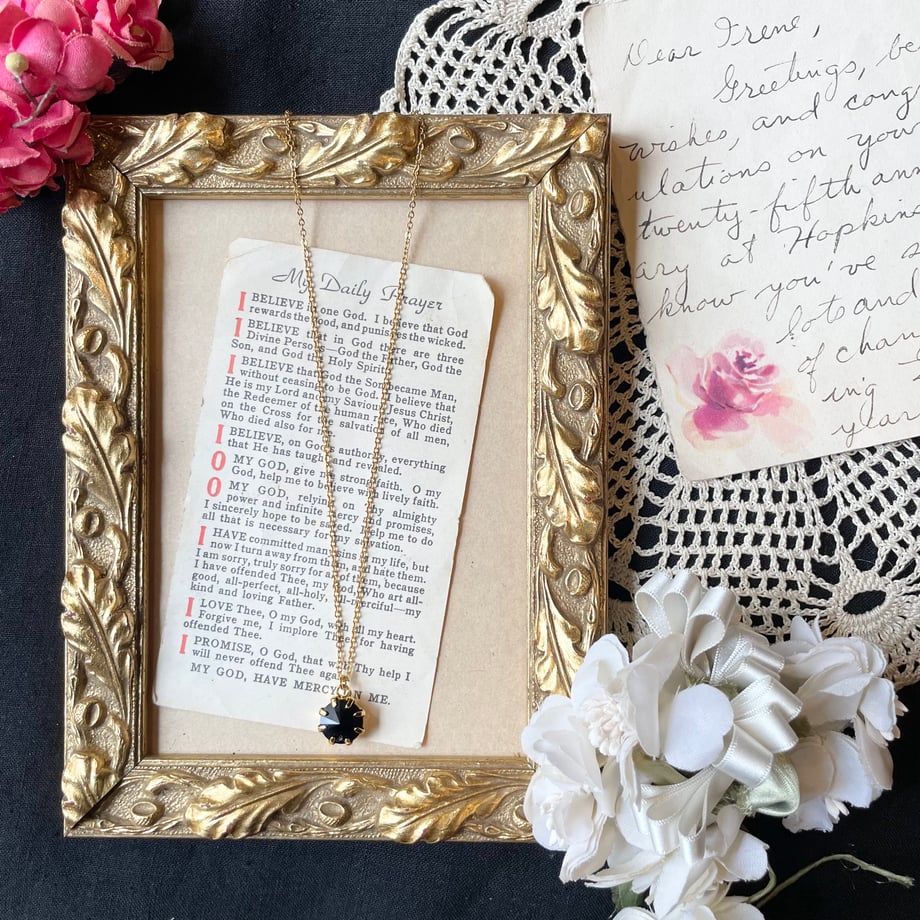 My Daily Prayer
I BELIEVE in one God. I believe that God
rewards the good, and punishes the wicked.
I BELIEVE that in God there are three
Divine Persons—God the Father, God the
Son, and God the Holy Spirit.
I BELIEVE that God the Son became Man,
without ceasing to be God. I believe that
He is my Lord and my Saviour, Jesus Christ,
the Redeemer of the human race, Who died
on the Cross for the salvation of all men,
Who died also for me.
I BELIEVE, on God's authority, everything
that He has taught and revealed.
O MY GOD, give me strong faith. O my
God, help me to believe with lively faith.
O MY GOD, relying on Thy almighty
power and infinite mercy and promises,
I sincerely hope to be saved. Help me to do
all that is necessary for my salvation.
I HAVE committed many sins in my life, but
now I turn away from them, and hate them.
I am sorry, truly sorry for all of them, because
I have offended Thee, my God, Who art all-
good, all-perfect, all-holy, all-merciful—my
kind and loving Father.
I LOVE Thee, O my God, with all my heart.
Forgive me, I implore Thee, for having
offended Thee.
I PROMISE, O God, that with Thy help I
will never offend Thee again.
MY GOD, HAVE MERCY ON ME.
Dear Irene,
Greetings, be
wishes, and cong
ulations on your
twenty-fifth ann
ary at Hopkins
know you've s
lots and
of chan
ing
years